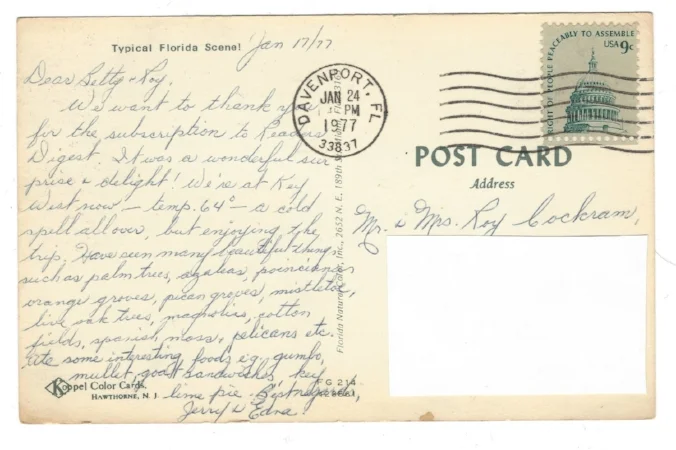 Typical Florida Scene!
Jan 17/77
Dear Betty & Roy,
We want to thank you
for the subscription to Readers
Digest. It was a wonderful sur
prise & delight! We're at Key
West now — temp. 64° — a cold
spell all over, but enjoying the
trip. Have seen many beautiful things
such as palm trees, azaleas, poincianas
orange groves, pican groves, mistletoe,
live oak trees, magnolias, cotton
fields, spanish moss, pelicans etc.
Ate some interesting foods eg. gumbo,
mullet, goat sandwiches, key
lime pie. Best regards,
Jerry & Edna.
Koppel Color Cards.
HAWTHORNE, N. J.
FG 214
Florida Natural Color, Inc., 2652 N. E. 189th
DAVENPORT, FL
JAN 24
PM
1977
33837
RIGHT OF PEOPLE PEACEABLY TO ASSEMBLE
USA 9c
POST CARD
Address
Mr. & Mrs. Roy Cockram,